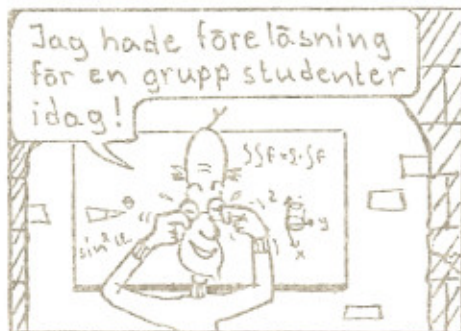 Jag hade föreläsning
för en grupp studenter
idag!
θ
sin²u
2
y
x